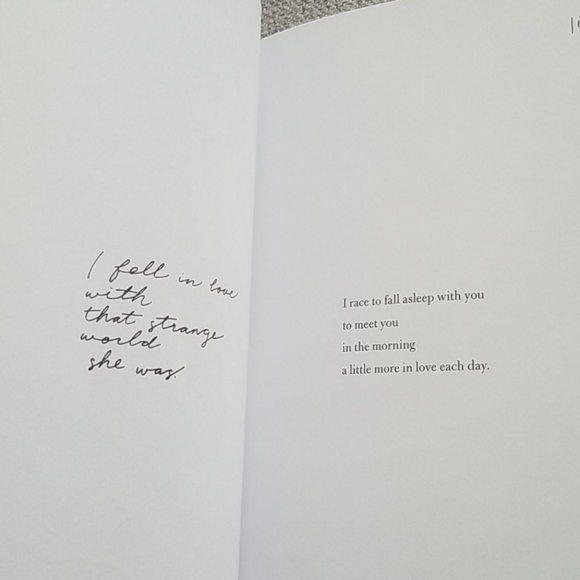 I fell in love
with
that strange
world
she was.
I race to fall asleep with you
to meet you
in the morning
a little more in love each day.